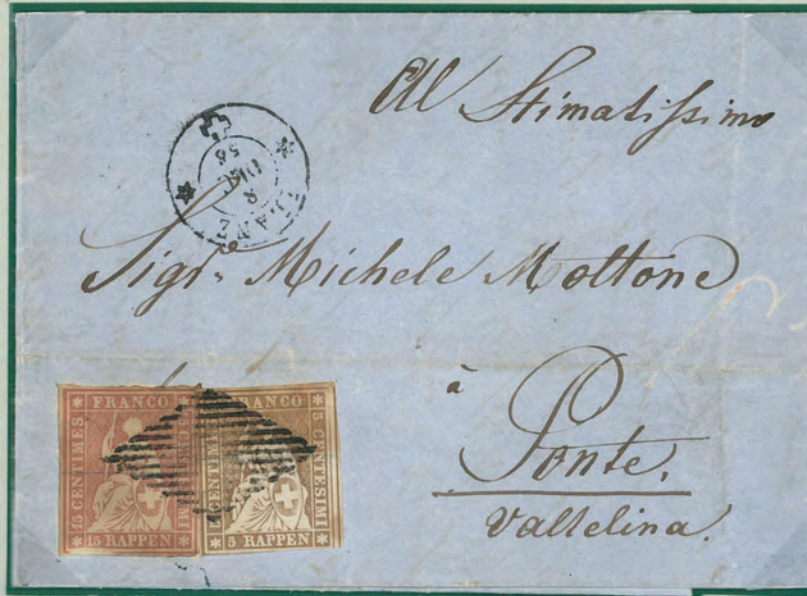 Al Stimatissimo
ILANZ
8
DEC
56
Sigr. Michele Mottone
à
Ponte,
Valtelina.
FRANCO
15 CENTIMES
15 CENTESIMI
15 RAPPEN
FRANCO
5 CENTIMES
5 CENTESIMI
5 RAPPEN